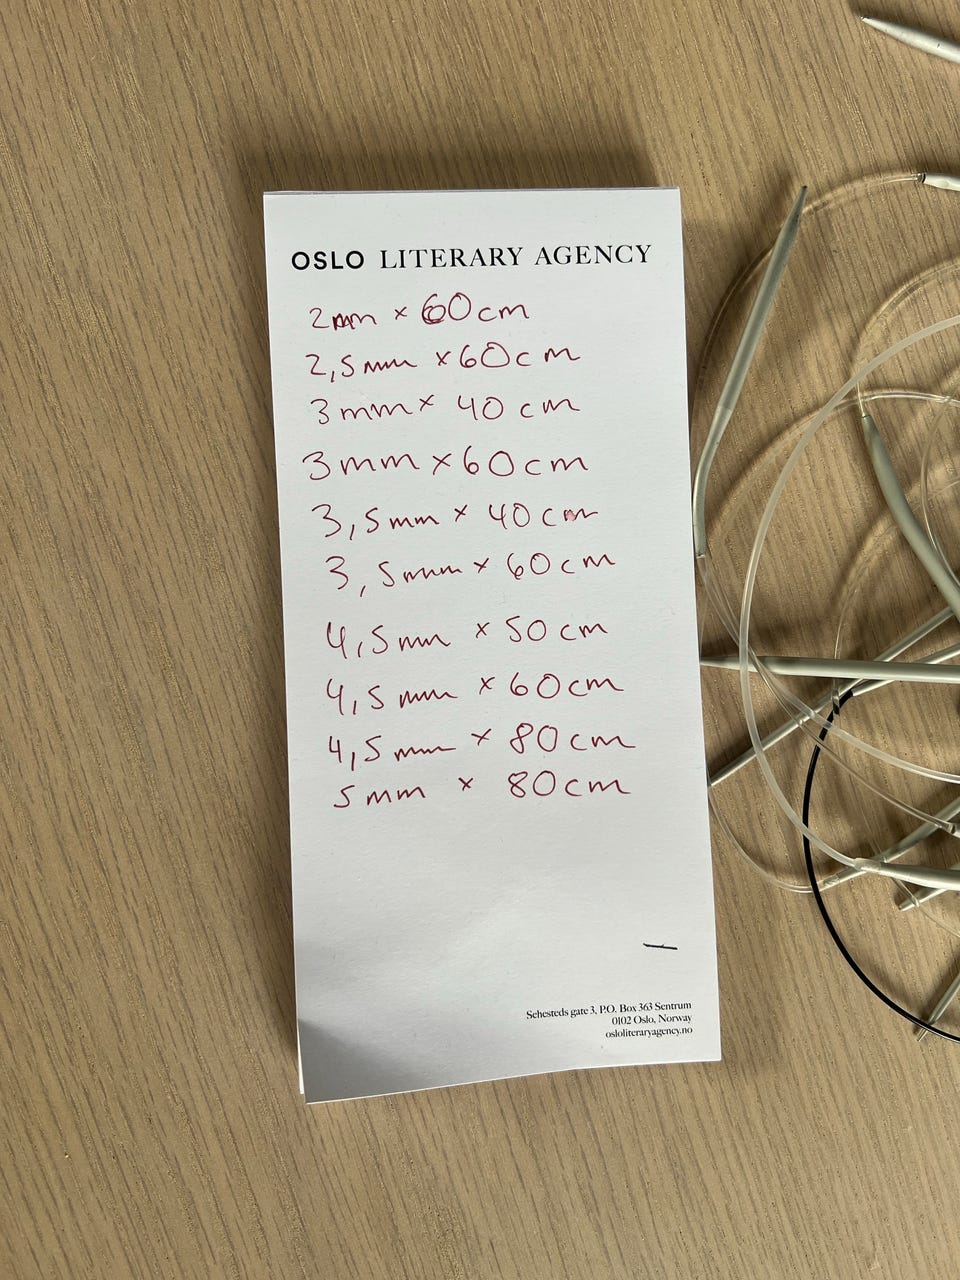 OSLO LITERARY AGENCY
2mm × 60cm
2,5mm × 60cm
3mm × 40cm
3mm × 60cm
3,5mm × 40cm
3,5mm × 60cm
4,5mm × 50cm
4,5mm × 60cm
4,5mm × 80cm
5mm × 80cm
Sehesteds gate 3, P.O. Box 363 Sentrum
0102 Oslo, Norway
osloliteraryagency.no